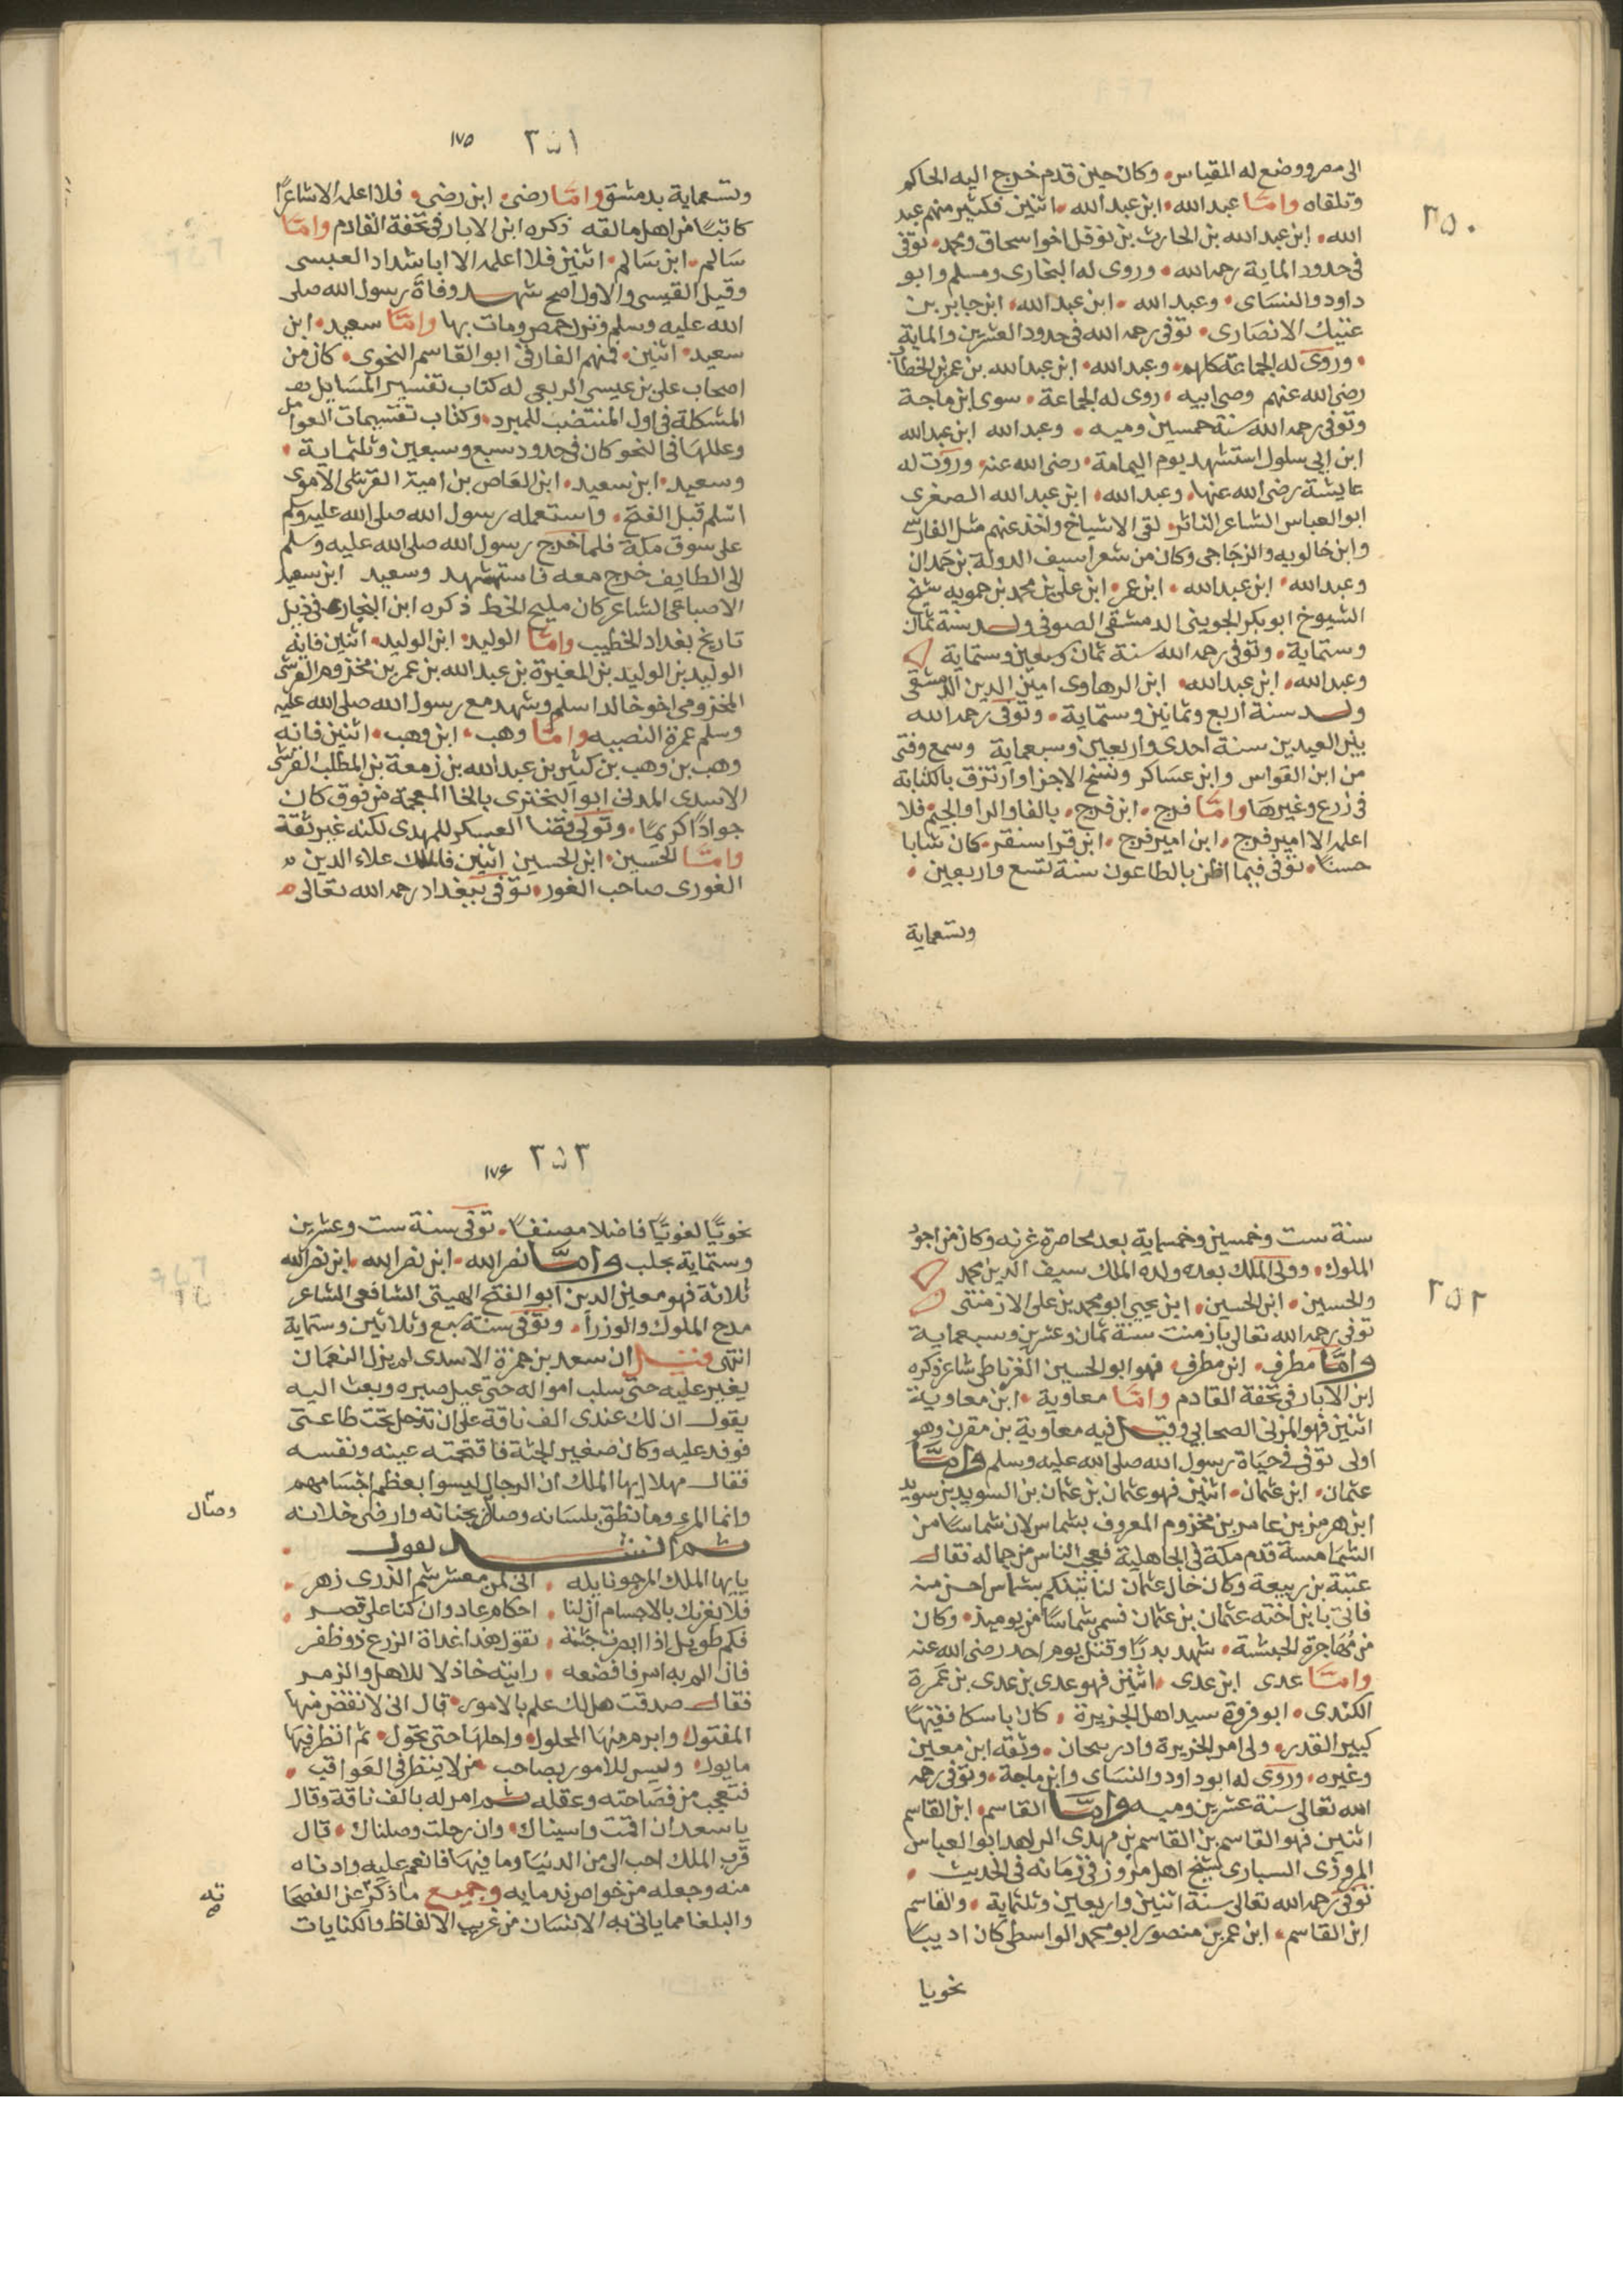 ٣٥٠
الى مصر ووضع له المقياس، وكان حين قدم خرج اليه الحاكم
وتلقاه وامّا عبد الله، ابن عبد الله، اثنين فكثير منهم عبد
الله، ابن عبد الله بن الحارث بن نوفل اخو اسحاق ومحمد، توفى
فى حدود الماية رحمه الله، وروى له البخارى ومسلم وابو
داود والنسَاى، وعبد الله، ابن عبد الله، ابن جابر بن
عتيك الانصَارى، توفى رحمه الله فى حدود العشرين والماية
، وروى له الجماعة كلهم، وعبد الله، ابن عبد الله بن عمر بن الخطاب
رضى الله عنهم وصى ابيه، روى له الجماعة، سوى ابن ماجة
وتوفى رحمه الله سنة خمسين وميه، وعبد الله ابن عبد الله
ابن ابى سلول استشهد يوم اليمامة، رضى الله عنه، وروت له
عايشة رضى الله عنها، وعبد الله، ابن عبد الله الصفرى
ابو العباس الشاعر الناثر، لقى الاشياخ واخذ عنهم مثل الفارسى
وابن خالويه والزجاجى وكان من شعرا سيف الدولة بن حمدان
وعبد الله، ابن عبد الله، ابن عمر، ابن على بن محمد بن حمويه شيخ
الشيوخ ابو بكر الجوينى الدمشقى الصوفى ولد سنة ثمان
وستماية، وتوفى رحمه الله سنة ثمان وسبعين وستماية
وعبد الله، ابن عبد الله، ابن الرهاوى امين الدين الدمشقى
ولد سنة اربع وثمانين وستماية، وتوفى رحمه الله
بين العيدين سنة احدى واربعين وسبعماية وسمع وفتى
من ابن القواس وابن عسَاكر ونسخ الاجزا وارتزق بالكتابة
فى زرع وغيرها وامّا فرج، ابن فرج، بالفا والرا والجيم فلا
اعلم الا امير فرج، ابن امير فرج، ابن قراسنقر، كان شابا
حسنًا، توفى فيما اظن بالطاعون سنة تسع واربعين،
وسبعماية
٣٥١ ١٧٥
وسبعماية بدمشق وامّا رضى، ابن رضى، فلا اعلم الا شاعرًا
كاتبًا من اهل مالقه ذكره ابن الابار فى تحفة القادم وامّا
سَالم، ابن سَالم، اثنين فلا اعلم الا ابا شداد العبسى
وقيل القيسى والاول اصح شهد وفاة رسول الله صلى
الله عليه وسلم ونزل حمص ومات بها وامّا سعيد، ابن
سعيد، اثنين، فمنهم الفارقى ابو القاسم النحوى، كان من
اصحاب على بن عيسى الربعى له كتاب تفسير المسَايل
المشكلة فى اول المقتضب للمبرد، وكتاب تقسيمات العوامل
وعللهَا فى النحو كان فى حدود سبع وسبعين وثلثماية،
وسعيد، ابن سعيد، ابن العَاص بن امية القرشى الاموى
اسْلم قبل الفتح، واستعمله رسول الله صلى الله عليه وسلم
على سوق مكة فلما خرج رسول الله صلى الله عليه وسلم
الى الطايف خرج معه فاستشهد وسعيد ابن سعيد
الاصباعى الشاعر كان مليح الخط ذكره ابن النجار فى ذيل
تاريخ بغداد الخطيب وامّا الوليد، ابن الوليد، اثنين فانه
الوليد بن الوليد بن المغيرة بن عبد الله بن عمر بن مخزوم القرشى
المخزومى اخو خالد اسلم وشهد مع رسول الله صلى الله عليه
وسلم عمرة القضيه وامّا وهب، ابن وهب، اثنين فانه
وهب بن وهب بن كثير بن عبد الله بن زمعة بن المطلب القرشى
الاسدى المدنى ابو البخترى بالخا المعجمة من فوق كان
جوادًا كريمًا، وتولى قضا العسكر للمهدى لكنه غير ثقة
وامّا الحسين، ابن الحسين اثنين فالملك علاء الدين
الغورى صاحب الغور، توفى ببغداد رحمه الله تعالى
٣٥٢
سنة ست وخمسين وخمسماية بعد محاصرة غزنه وكان من اجود
الملوك، وولى الملك بعده ولده الملك سيف الدين محمد
والحسين، ابن الحسين، ابن يحيى ابو محمد بن على الارمنتى
توفى رحمه الله تعالى بارمنت سنة ثمان وعشرين وسبعماية
وامّا مطرف، ابن مطرف، فهو ابو الحسين الغرناطى شاعر ذكره
ابن الابار فى تحفة القادم وامّا معاوية، ابن معاوية
اثنين فهو المزنى الصحابى وقيل فيه معاوية بن مقرن وهو
اولى توفى فى حيَاة رسول الله صلى الله عليه وسلم وامّا
عثمان، ابن عثمان، اثنين فهو عثمان بن عثمان بن السويد بن سويد
ابن هرمز بن عامر بن مخزوم المعروف بشماس لان شماسًا من
الشمَامسة قدم مكة فى الجاهلية فعجب الناس من جماله فقال
عتبة بن ربيعة وكان خال عثمان لنا ... بشماس احسن منه
فاتى بابن اخته عثمان بن عثمان فسمى شماسًا من يوميذ، وكان
من مُهَاجرة الحبشة، شهد بدرًا وقتل يوم احد رضى الله عنه
وامّا عدى ابن عدى، اثنين فهو عدى بن عدى بن عَمرة
الكندى، ابو فروة سيد اهل الجزيرة، كان ناسكا فقيهًا
كبير القدر، ولى امر الجزيرة وادربيجان، وثقه ابن معين
وغيره، وروى له ابو داود والنسَاى وابن ماجة، وتوفى رحمه
الله تعالى سنة عشرين وميه وامّا القاسم، ابن القاسم
اثنين فهو القاسم بن القاسم بن مهدى الزاهد ابو العباس
المروزى السيارى شيخ اهل مروز فى زمَانه فى الحديث،
توفى رحمه الله تعالى سنة اثنين واربعين وثلثماية، والقاسم
ابن القاسم، ابن عمر بن منصور ابو محمد الواسطى كان اديبًا
نحويا
٣٥٣ ١٧۶
نحويًا لغويًا فاضلا مصنفًا، توفى سنة ست وعشرين
وستماية بحلب وامّا نصر الله، ابن نصر الله، ابن نصر الله
ثلاثة فهو معين الدين ابو الفتح الهيتى الشافعى الشاعر
مدح الملوك والوزرا، وتوفى سنة سبع وثلاثين وستماية
انتهى قيل ان سعد بن حمزة الاسدى لم يزل النعمَان
يغير عليه حتى سلب امواله حتى عيل صبره وبعث اليه
يقول ان لك عندى الف ناقة على ان تدخل تحت طاعتى
فوفد عليه وكان صغير الجثة فاقتحمته عينه ونفسه
فقال مهلا ايها الملك ان الرجال ليسوا بعظم اجسَامهم
وانما المرء وما نطق بلسانه وصال بجنانه وارضى خلانه
وصال
ثم انشد يقول
يايها الملك المرجو نايله، انى لمن معشر شم الذرى زهر،
فلا يغرنك بالاجسام ان لنا، احلام عاد وان كنا على قصر،
فكم طويل اذا ابصرت جثته، تقول هذا غداة الروع ذو ظفر
فان الم به امر فافضعه، رايته خاذلا للاهل والزمر
فقال صدقت هل لك علم بالامور، قال انى لانقض منها
المفتول، وابرم منهَا المحلول، واجلهَا حتى تحول، ثم انظر فيهَا
ما يول، وليس للامور بصاحب، من لا ينظر فى العَواقب،
فتعجب من فصَاحته وعقله ثم امر له بالف ناقة وقال
ياسعد ان اقمت واسيناك، وان رحلت وصلناك، قال
قرب الملك احب الى من الدنيَا وما فيهَا فانعم عليه وادناه
منه وجعله من خواص ندمايه وجميع ما ذكر عن الفصحَا
والبلغا مما ياتى به الانسَان من غريب الالفاظ والكنايات